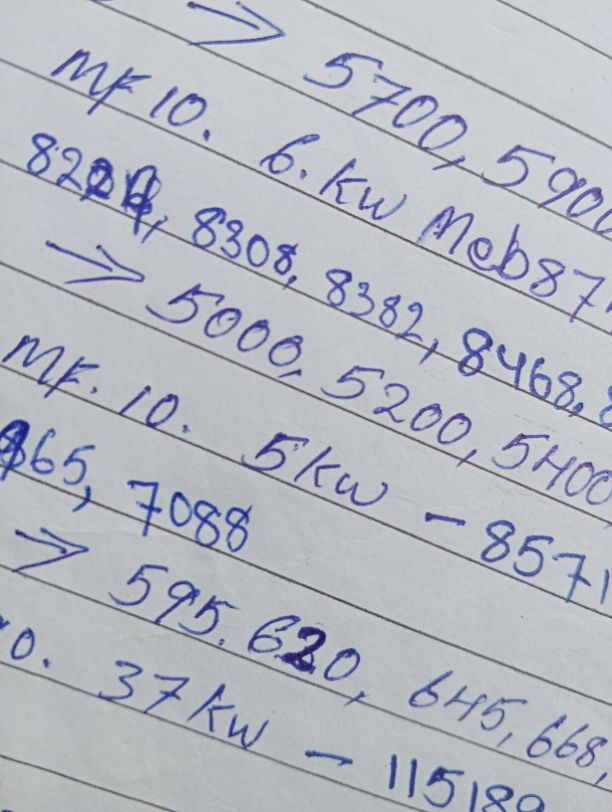 → 5700, 5900
MF 10. 6. KW Meb87
8224, 8308, 8382, 8468,
→ 5000, 5200, 5400
MF. 10. 5KW - 8571
65, 7088
→ 595. 620, 645, 668,
0. 37KW - 115189